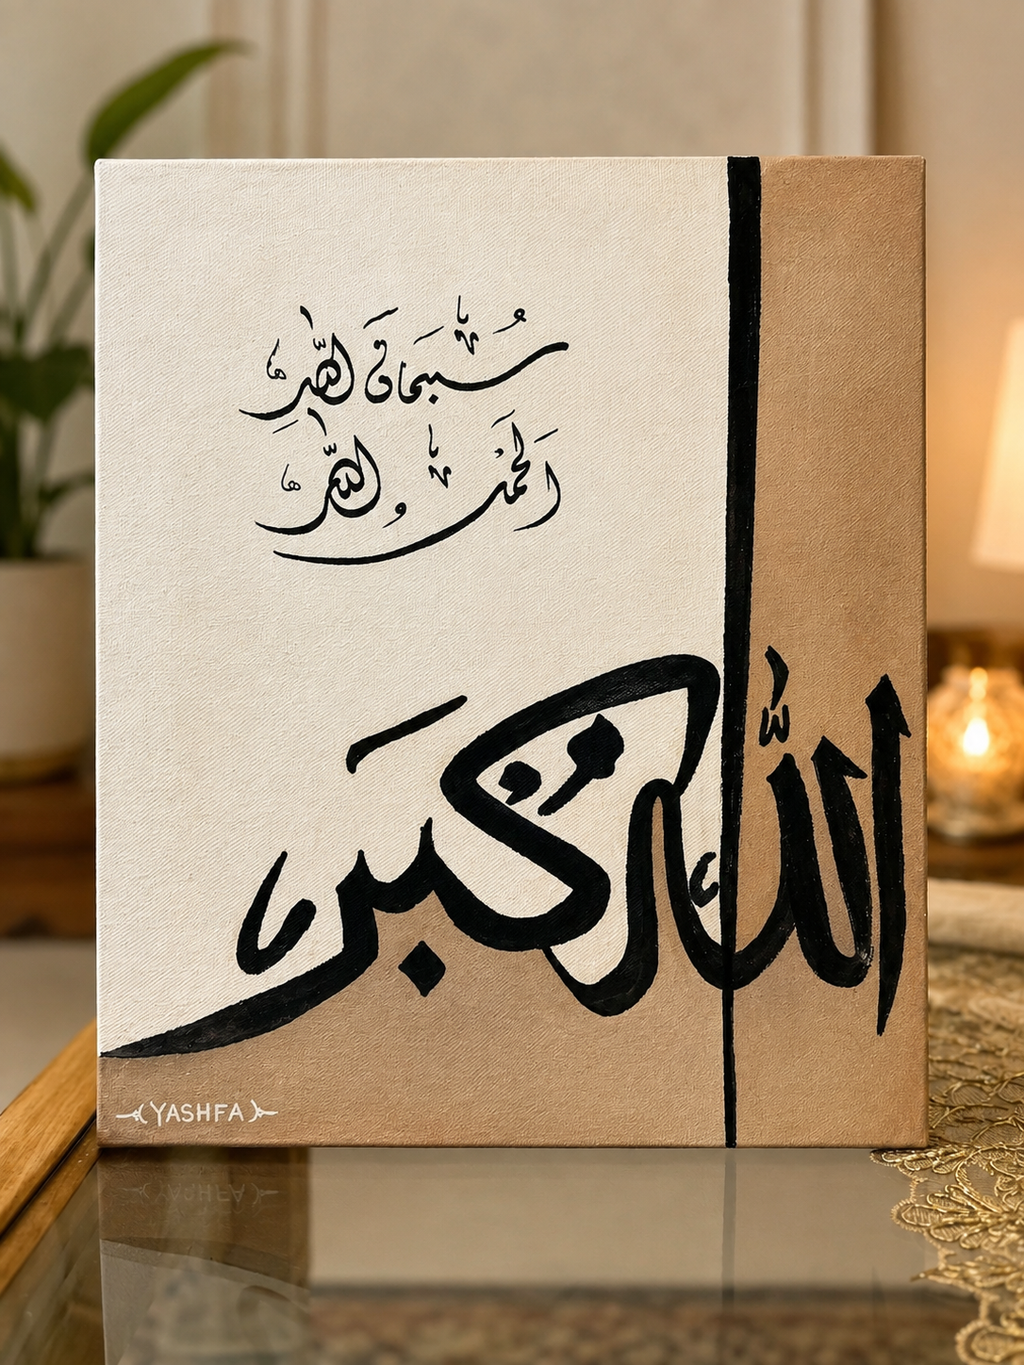 سُبحان الله
الحمد لله
الله أكبر
YASHFA